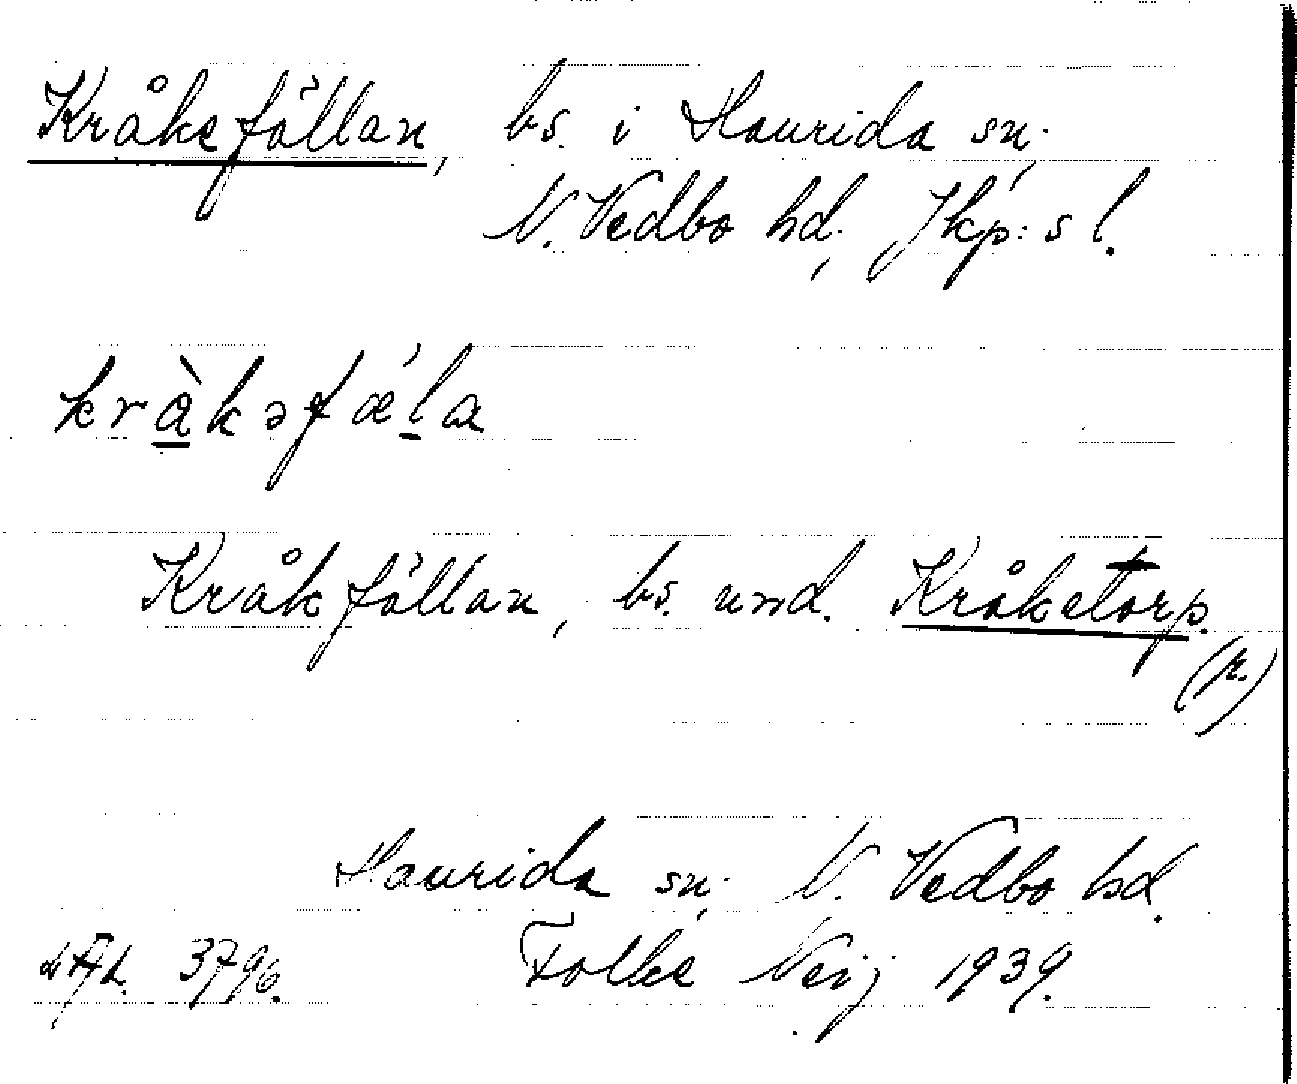 Kråkefällan, bs. i Haurida sn.
N. Vedbo hd., Jkp:s l.
kràkəfǽla
Kråkfällan, bs. und. Kråketorp.
(r.)
Haurida sn. N. Vedbo hd.
3796. Folke Neij 1939.